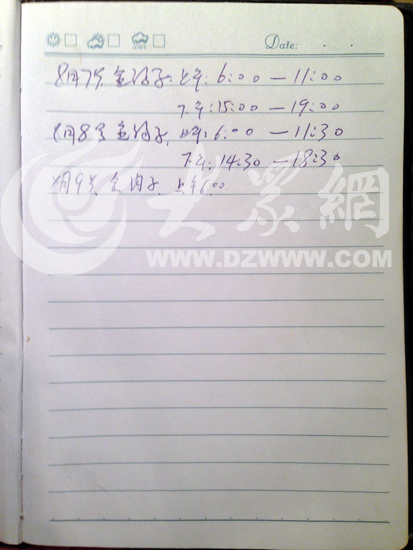 Date:
8月7号 金沟子: 上午: 6:00 — 11:00
下午: 15:00 — 19:00
8月8号 金沟子, 上午: 6:00 — 11:30
下午: 14:30 — 18:30
8月9号, 金沟子, 上午6:00
大眾網
WWW.DZWWW.COM